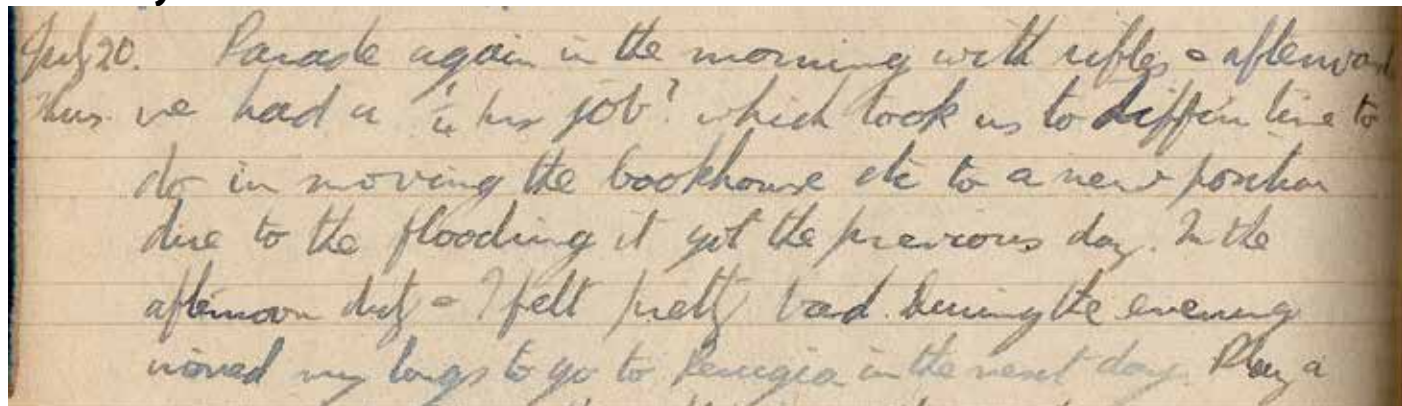 July 20. Parade again in the morning with rifles & afterward
Thus. we had a "½ hr job" which took us to tiffin time to
do in moving the cookhouse etc to a new position
due to the flooding it got the previous day. In the
afternoon duty & I felt pretty bad. During the evening
moved my longs to go to Perugia in the next day. Play a